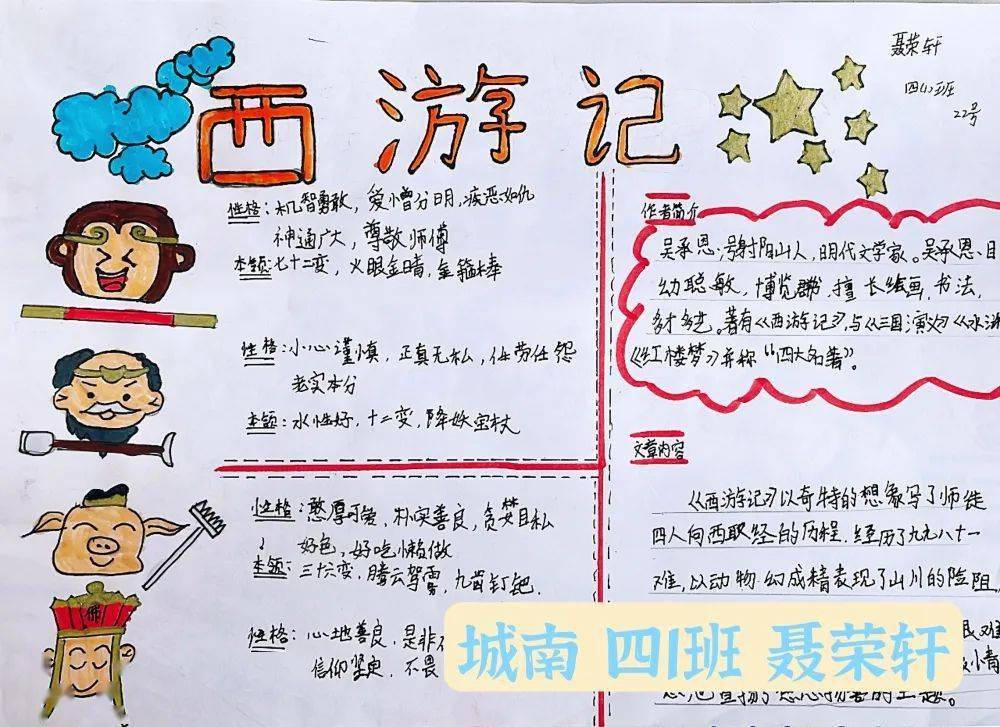 西游记
聂荣轩
四(1)班
22号
性格：机智勇敢，爱憎分明，疾恶如仇
神通广大，尊敬师傅
本领：七十二变，火眼金睛，金箍棒
性格：小心谨慎，正真无私，任劳任怨
老实本分
本领：水性好，十二变，降妖宝杖
性格：憨厚可爱，朴实善良，贪婪自私
好色，好吃懒做
本领：三十六变，腾云驾雾，九齿钉钯．
性格：心地善良，是非
信仰坚定，不畏
佛
作者简介
吴承恩：号射阳山人，明代文学家。吴承恩、自
幼聪敏，博览群书，擅长绘画，书法，
多才多艺。著有《西游记》，与《三国演义》《水浒
《红楼梦》并称“四大名著”。
文章内容
《西游记》以奇特的想象写了师徒
四人向西取经的历程，经历了九九八十一
难，以动物幻成精表现了山川的险阻，
城南 四1班 聂荣轩